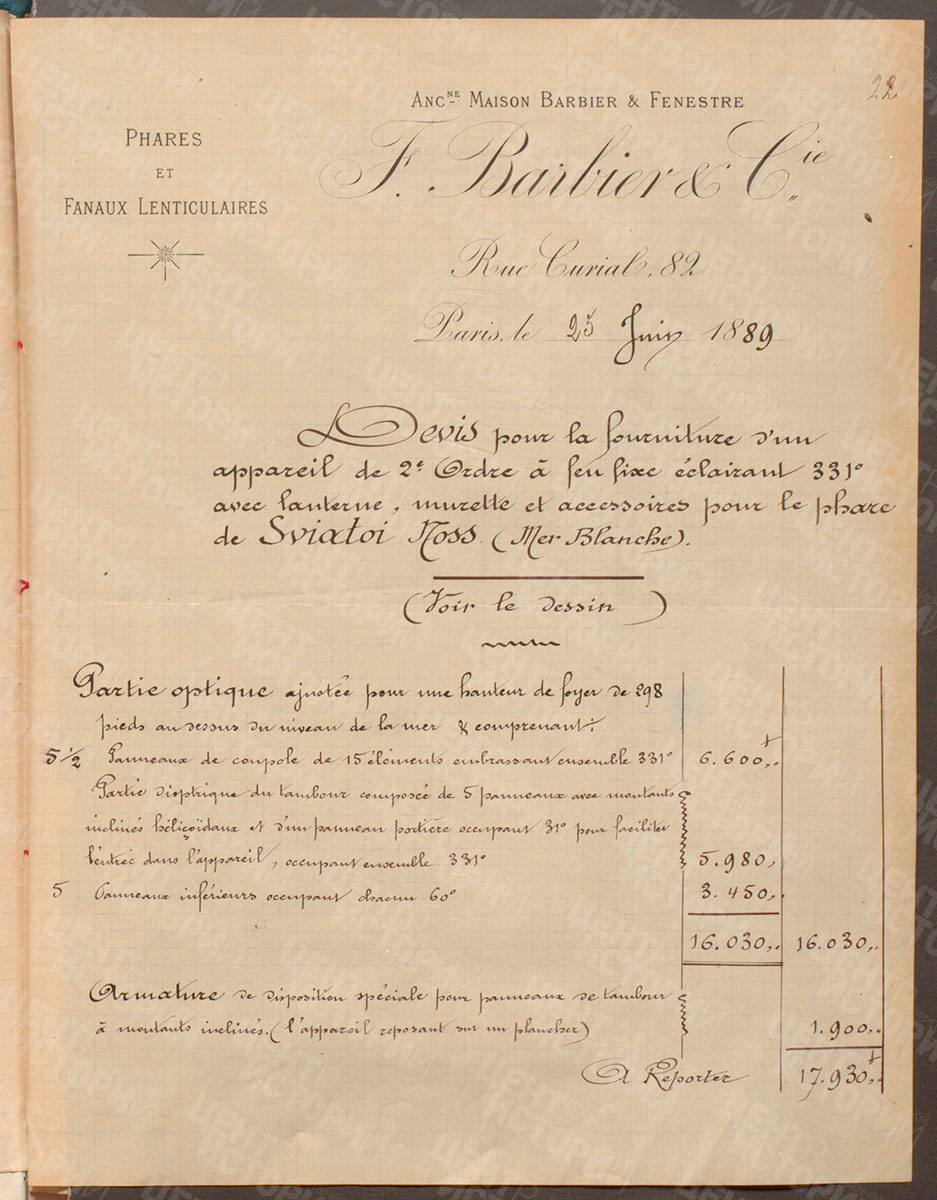 22
Ancne Maison Barbier & Fenestre
Phares
et
Fanaux Lenticulaires
F. Barbier & Cie
Rue Curial, 82
Paris, le 25 Juin 1889
Devis pour la fourniture d'un
appareil de 2e Ordre à feu fixe éclairant 331°
avec lanterne, murette et accessoires pour le phare
de Sviatoi Noss (Mer Blanche).
(Voir le dessin)
Partie optique ajustée pour une hauteur de foyer de 298
pieds au dessus du niveau de la mer & comprenant:
5 1/2 Panneaux de coupole de 15 éléments embrassant ensemble 331° 6.600,.
Partie dioptrique du tambour composée de 5 panneaux avec montants
inclinés hélicoïdaux et d'un panneau portière occupant 31° pour faciliter
l'entrée dans l'appareil, occupant ensemble 331° 5.980,
5 Panneaux inférieurs occupant chacun 60° 3.450,.
16.030,. 16.030,.
Armature de disposition spéciale pour panneaux de tambour
à montants inclinés. (l'appareil reposant sur un plancher) 1.900,.
A Reporter 17.930,.